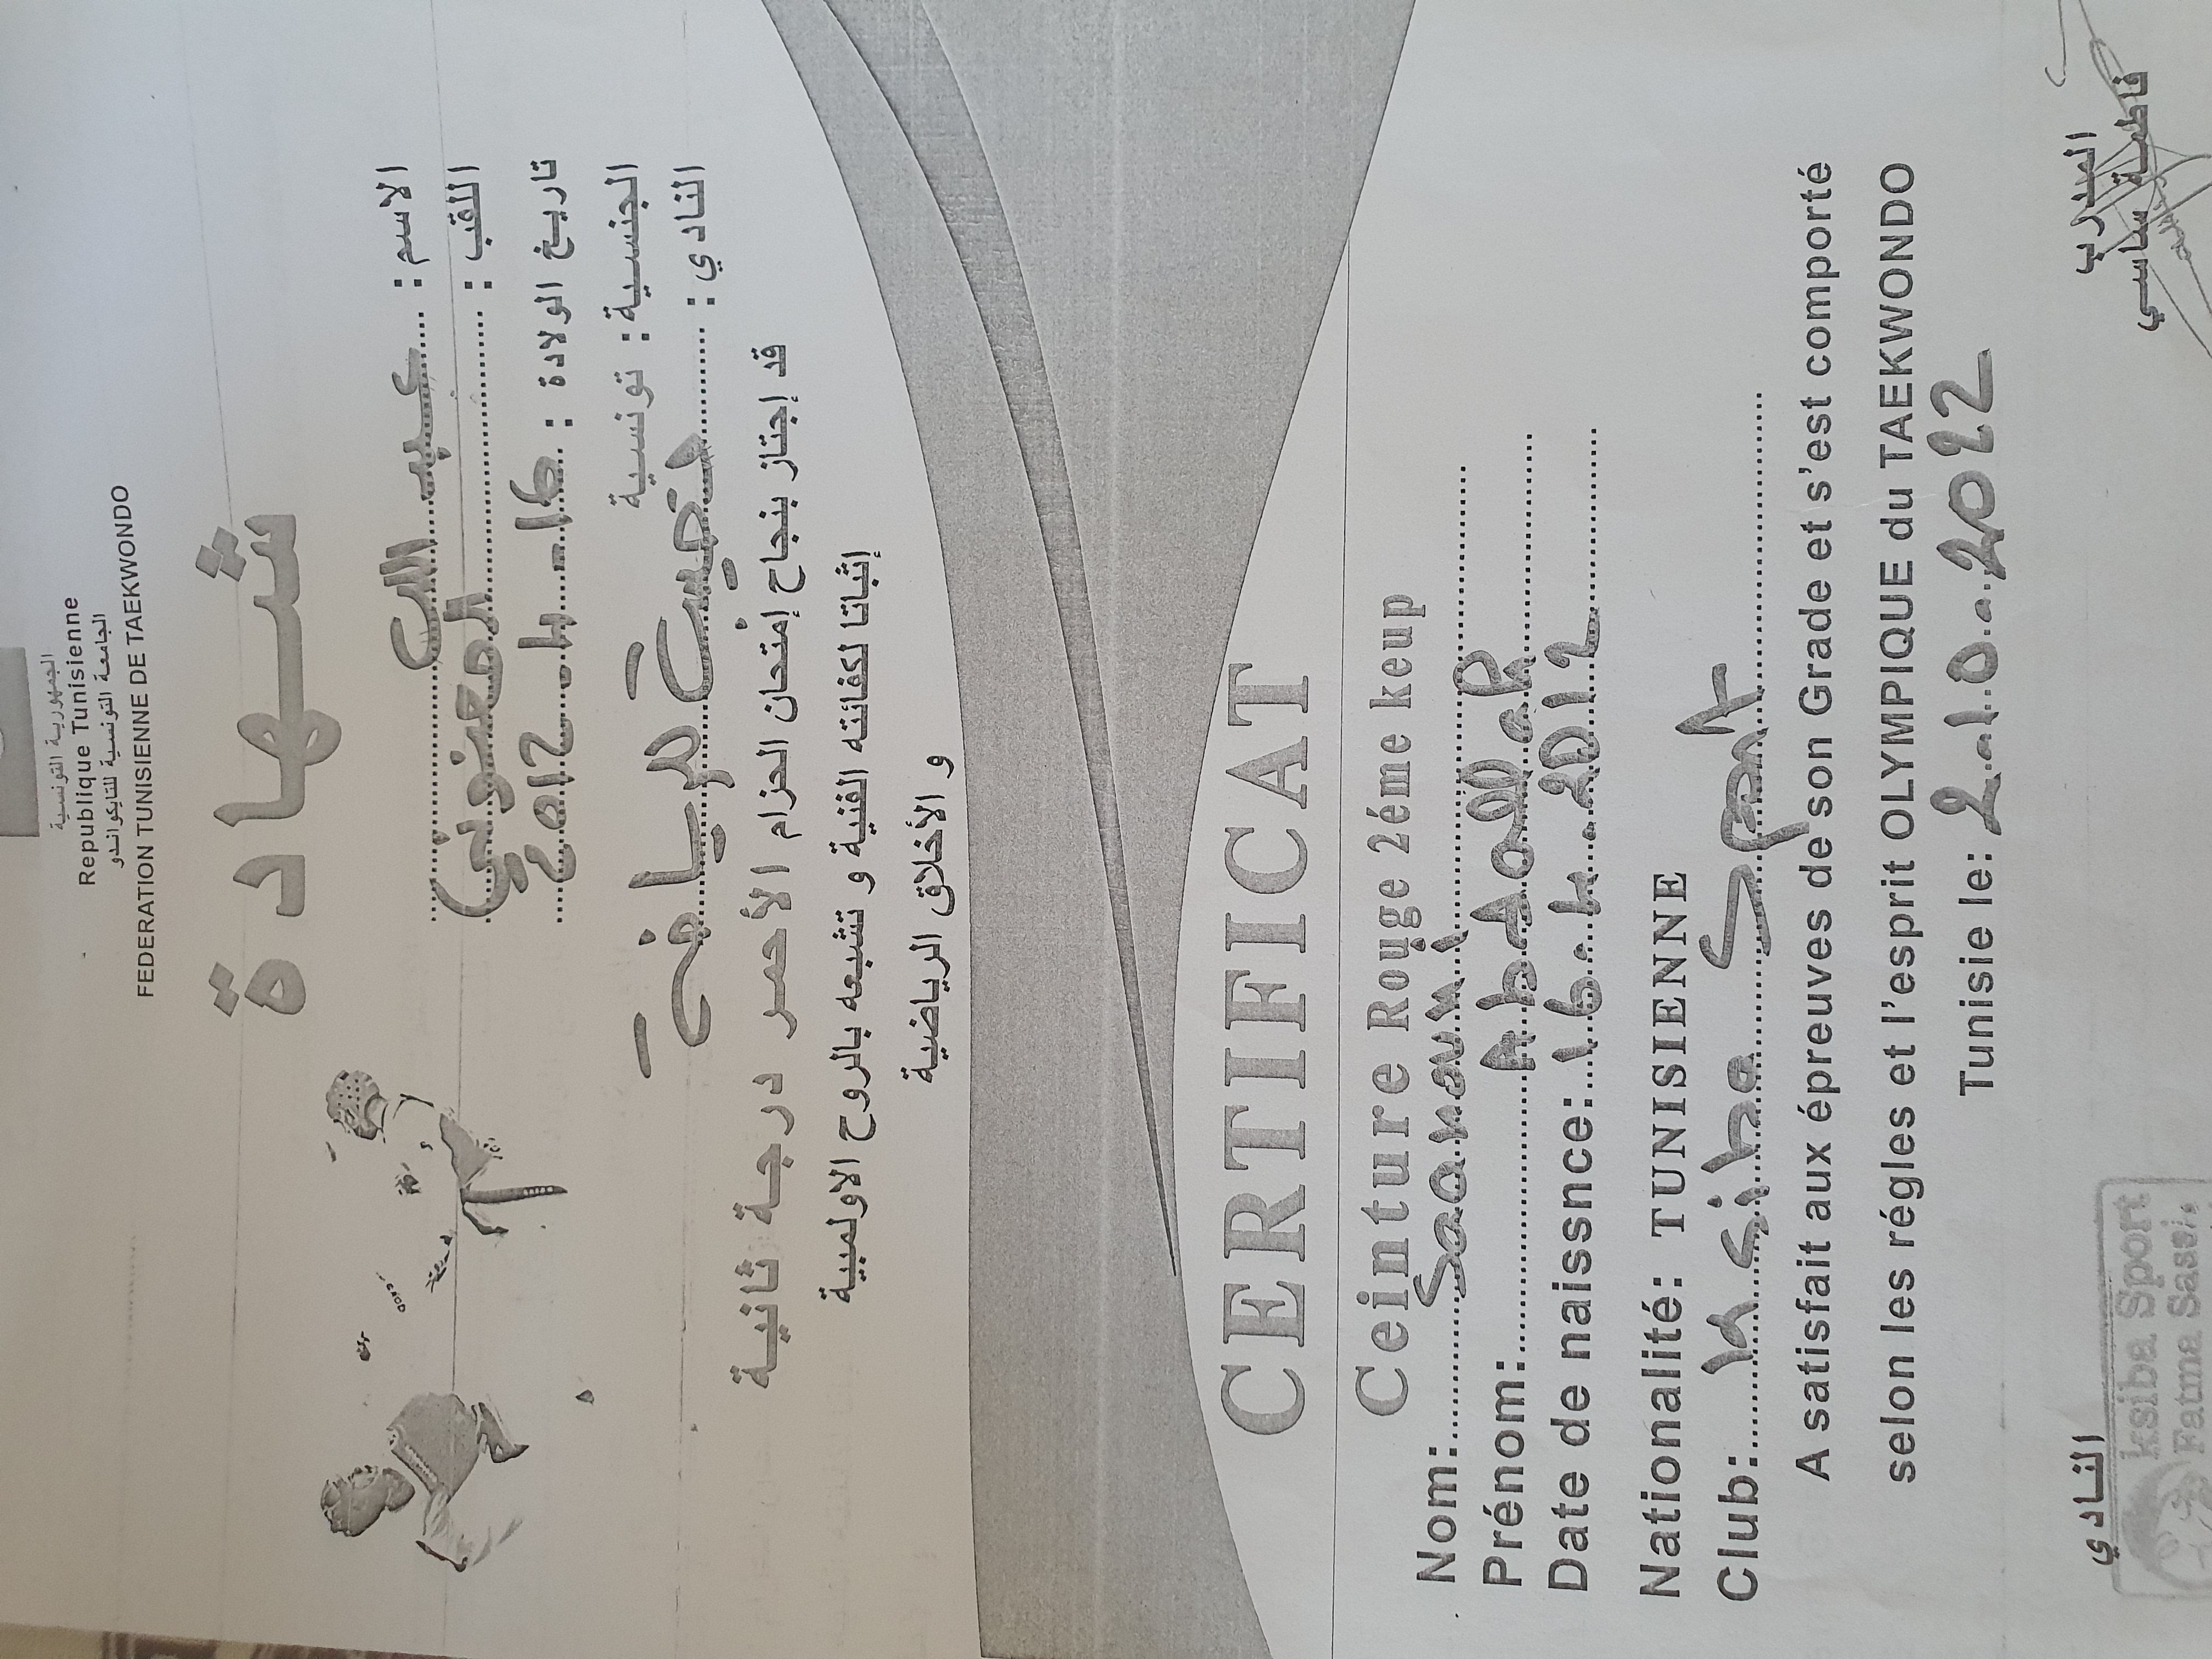 الجمهورية التونسية
Republique Tunisienne
الجامعة التونسية للتايكواندو
FEDERATION TUNISIENNE DE TAEKWONDO
شهادة
الاسم : عبد الله
اللقب :
تاريخ الولادة : 16 - 4 - 2012
الجنسية : تونسية
النادي :
قد إجتاز بنجاح إمتحان الحزام الأحمر درجة ثانية
إثباتا لكفائته الفنية و تشبعه بالروح الاولمبية
و الأخلاق الرياضية
CERTIFICAT
Ceinture Rouge 2éme keup
Nom:
Prénom: Abdallah
Date de naissnce: 16. 4. 2012
Nationalité: TUNISIENNE
Club: Ksiba Sport
A satisfait aux épreuves de son Grade et s'est comporté
selon les régles et l'esprit OLYMPIQUE du TAEKWONDO
Tunisie le: 2.10.2022
النادي المدرب
فاطمة ساسي
ksiba Sport
Fatma Sassi